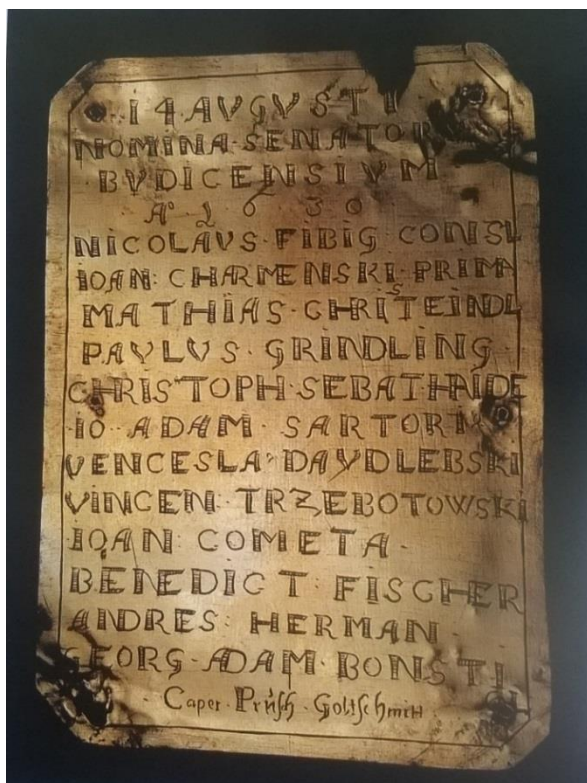 14 AVGVSTI
NOMINA·SENATOR
BVDICENSIVM
Aº 1630
NICOLAVS·FIBIG CONSL
IOAN: CHARMENSKI·PRIMA
MATHIAS·CHRISTEINDL
PAVLVS·GRINDLING·
CHRISTOPH·SEBATHAIDE
IO·ADAM SARTORI
VENCESLA·DAVDLEBSKI
VINCEN·TRZEBOTOWSKI
IOAN COMETA·
BENEDICT FISCHER
ANDRES: HERMAN·
GEORG·ADAM·BONSTI
Caper·Prüsch·Goltschmit